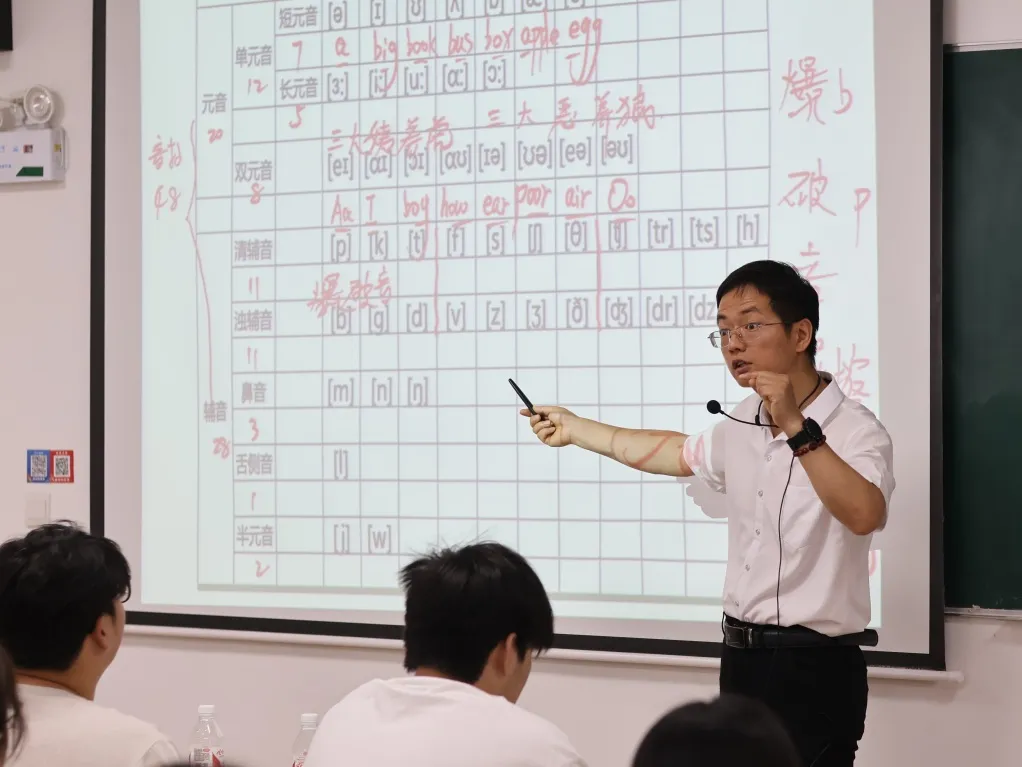 短元音 [ə] [ɪ] [ʊ] [ʌ]
单元音 7 a big book bus box apple egg
12
长元音 [ɜː] [iː] [uː] [ɑː] [ɔː]
5
元音
20
三大 三大恶
双元音 [eɪ] [aɪ] [ɔɪ] [aʊ] [ɪə] [ʊə] [eə] [əʊ]
8
Aa I boy how ear poor air Oo
音标
48
清辅音 [p] [k] [t] [f] [s] [ʃ] [θ] [ʧ] [tr] [ts] [h]
11
爆破音
浊辅音 [b] [g] [d] [v] [z] [ʒ] [ð] [ʤ] [dr] [dz
11
鼻音 [m] [n] [ŋ]
3
辅音
28
舌侧音 [l]
1
半元音 [j] [w]
2
爆 b
破 p
音